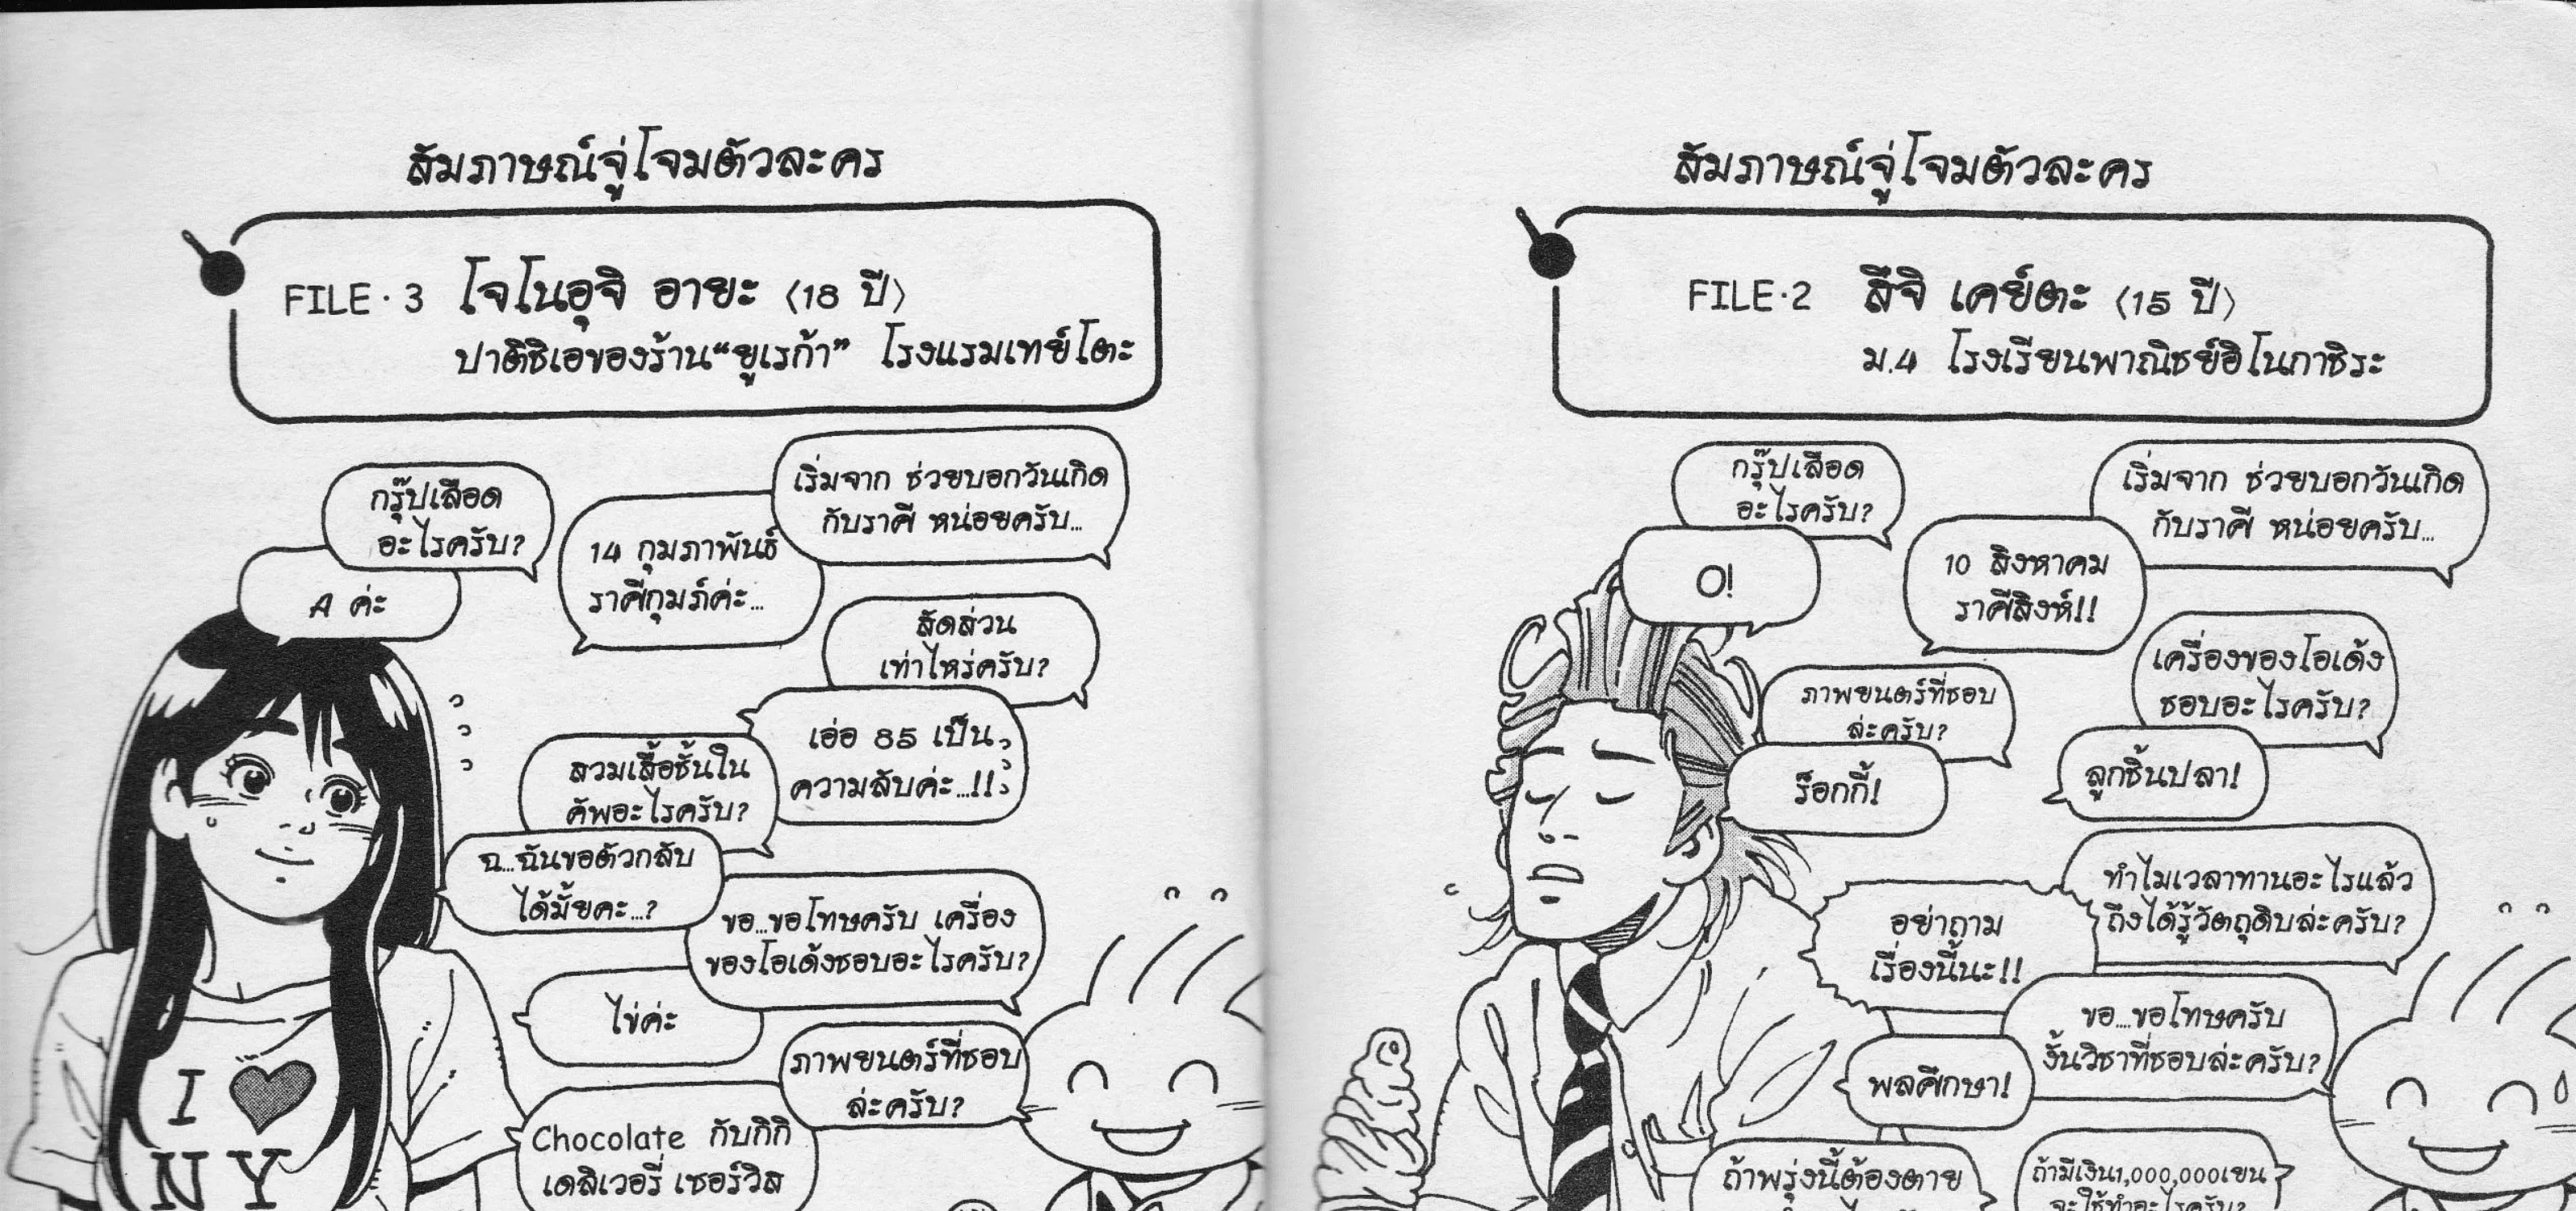 สัมภาษณ์จู่โจมตัวละคร
FILE·3 โจโนอุจิ อายะ (18 ปี)
ปาติชิเอของร้าน“ยูเรก้า” โรงแรมเทย์โตะ
เริ่มจาก ช่วยบอกวันเกิด
กับราศี หน่อยครับ...
14 กุมภาพันธ์
ราศีกุมภ์ค่ะ...
กรุ๊ปเลือด
อะไรครับ?
A ค่ะ
สัดส่วน
เท่าไหร่ครับ?
เอ่อ 85 เป็น
ความลับค่ะ...!!
สวมเสื้อชั้นใน
คัพอะไรครับ?
ฉ...ฉันขอตัวกลับ
ได้มั้ยคะ...?
ขอ...ขอโทษครับ เครื่อง
ของโอเด้งชอบอะไรครับ?
ไข่ค่ะ
ภาพยนตร์ที่ชอบ
ล่ะครับ?
Chocolate กับกิกิ
เดลิเวอรี่ เซอร์วิส
I ♥
NY
สัมภาษณ์จู่โจมตัวละคร
FILE·2 สึจิ เคย์ตะ (15 ปี)
ม.4 โรงเรียนพาณิชย์อิโนกาชิระ
เริ่มจาก ช่วยบอกวันเกิด
กับราศี หน่อยครับ...
10 สิงหาคม
ราศีสิงห์!!
กรุ๊ปเลือด
อะไรครับ?
O!
เครื่องของโอเด้ง
ชอบอะไรครับ?
ลูกชิ้นปลา!
ภาพยนตร์ที่ชอบ
ล่ะครับ?
ร็อกกี้!
ทำไมเวลาทานอะไรแล้ว
ถึงได้รู้วัตถุดิบล่ะครับ?
อย่าถาม
เรื่องนี้นะ!!
ขอ....ขอโทษครับ
งั้นวิชาที่ชอบล่ะครับ?
พลศึกษา!
ถ้ามีเงิน1,000,000เยน
จะใช้ทำอะไรครับ?
ถ้าพรุ่งนี้ต้องตาย